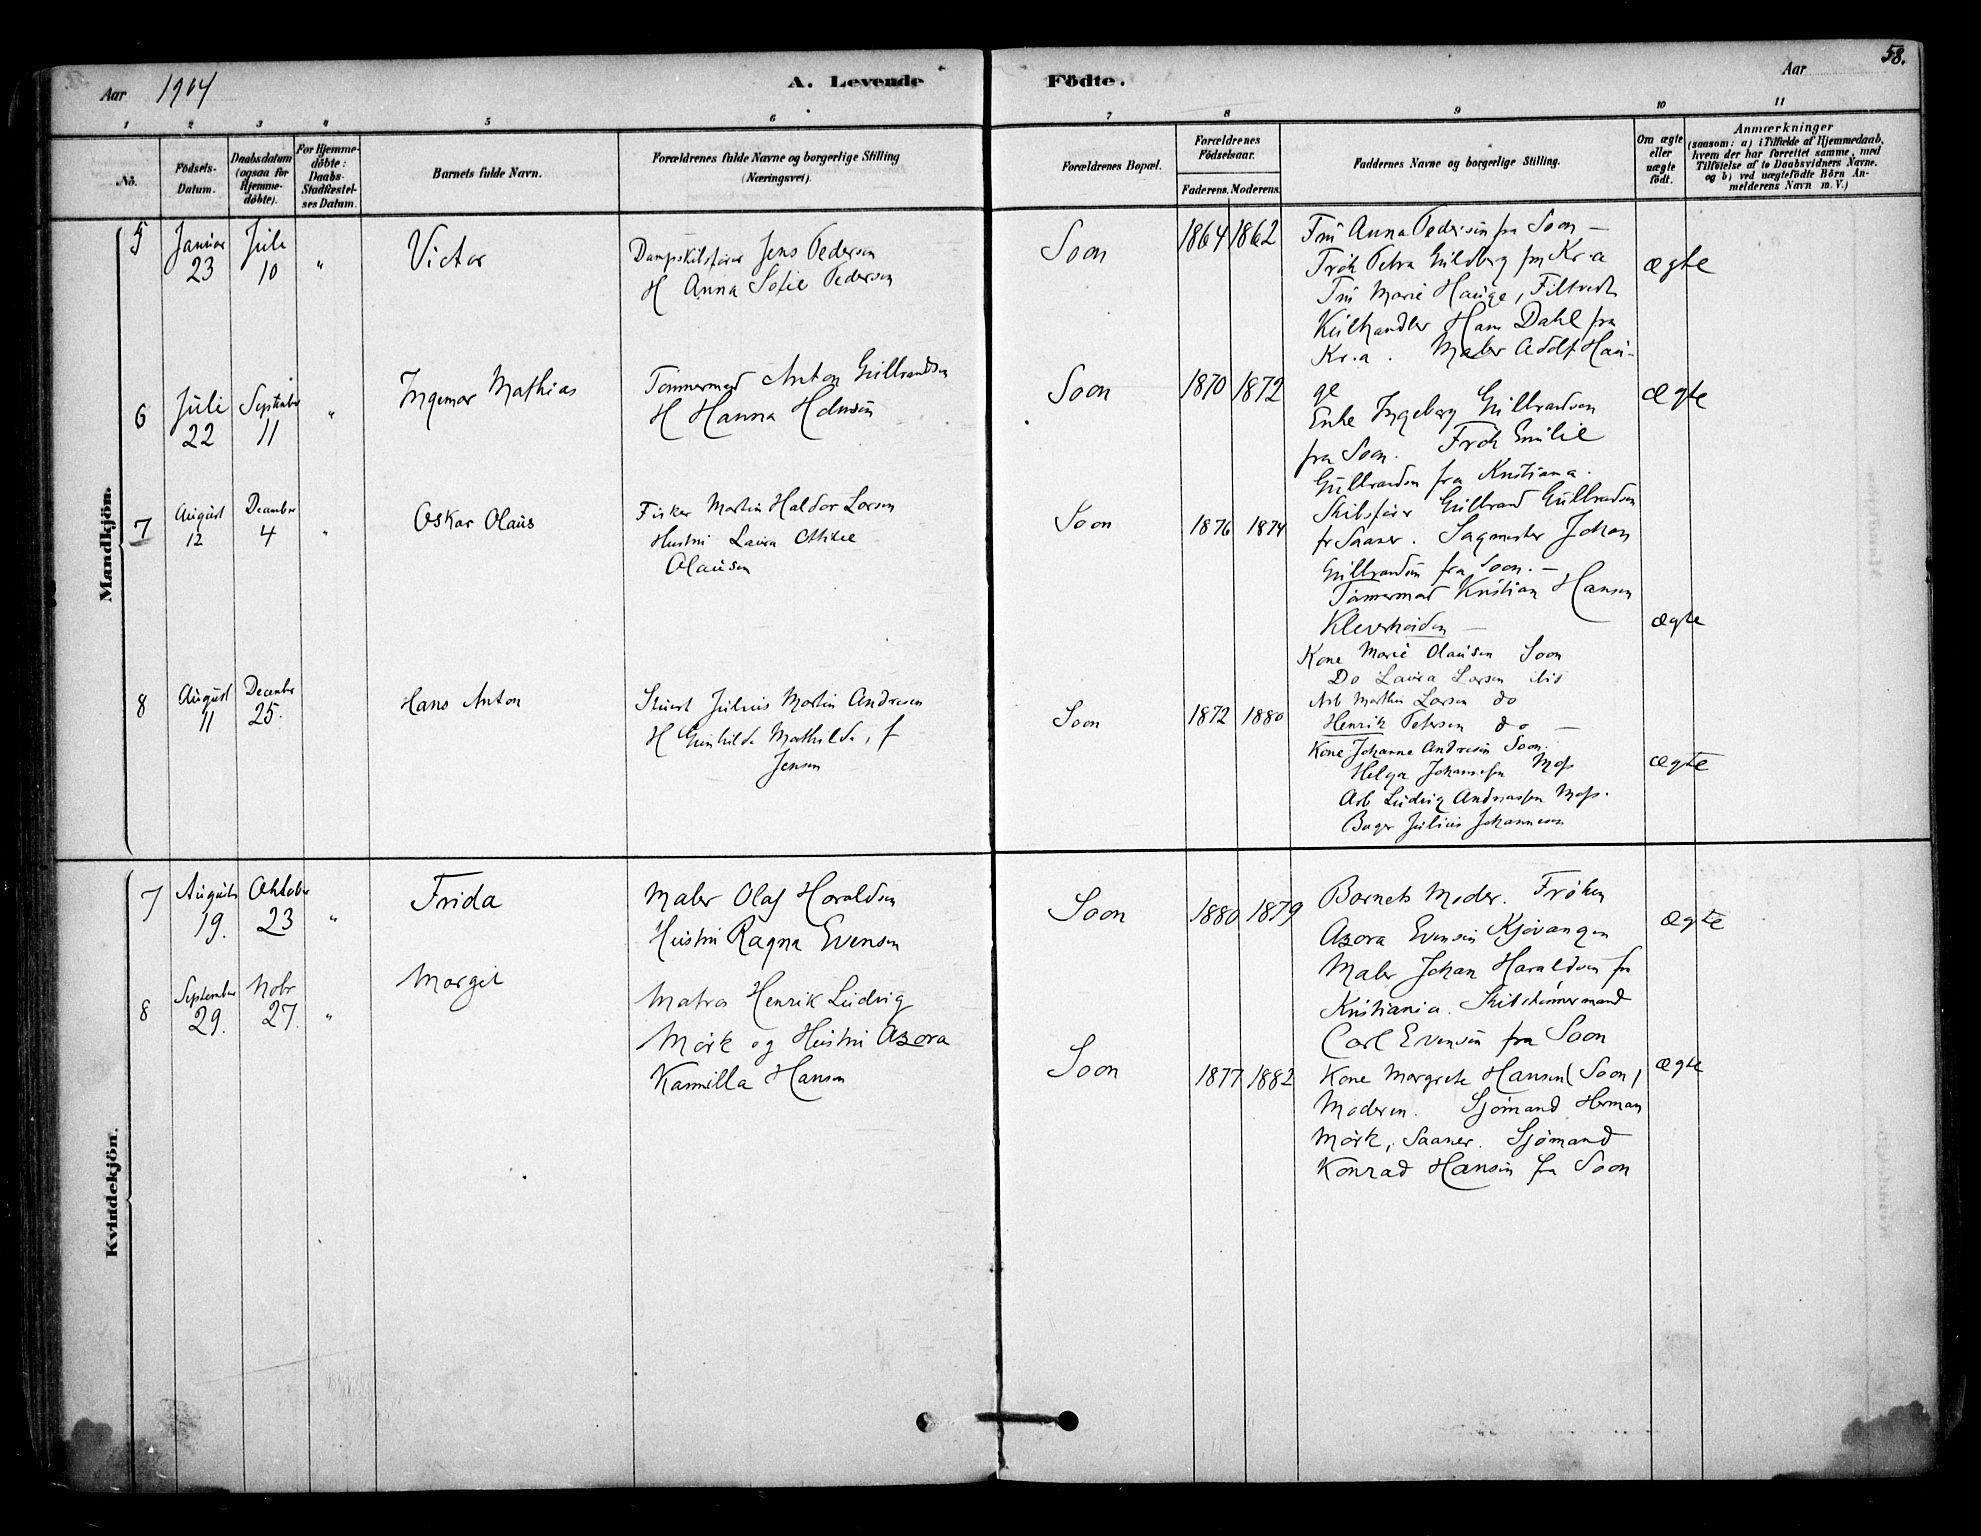 58.
Aar 1904 A. Levende Födte. Aar
1 2 3 4 5 6 7 8 9 10 11
No. Födsels-Datum. Daabsdatum (ogsaa for Hjemme-döbte). For Hjemme-döbte: Daabs-Stadfæstel-ses Datum. Barnets fulde Navn. Forældrenes fulde Navne og borgerlige Stilling (Næringsvei). Forældrenes Bopæl. Forældrenes Födselsaar. Faderens. Moderens. Faddernes Navne og borgerlige Stilling. Om ægte eller uægte födt. Anmærkninger (saasom: a) i Tilfælde af Hjemmedaab, hvem der har forrettet samme, med Tilföielse af to Daabsvidners Navne. og b) ved uægtefödte Börn An-melderens Navn m. V.)
Mandkjön.
5 Januar 23 Juli 10 " Victor
Dampskibsfører Jens Pedersen
H Anna Sofie Pedersen
Soon 1864 1862
Fru Anna Pedersen fra Soon –
Frøk Petra Guldberg fra Kr.a
Fru Marie Hauge, Filtvedt
Kulhandler Hans Dahl fra
Kr.a. Maler Adolf Hau-
ge
ægte
6 Juli 22 September 11 " Ingemar Mathias
Tømmermand Anton Gulbrandsen
H Hanna Hansen
Soon 1870 1872
Enke Ingeborg Gulbrandsen
fra Soon. Frøk Emilie
Gulbrandsen fra Kristiania.
Skibsfører Gulbrand Gulbrandsen
fr Saaner. Sagmester Johan
Gulbrandsen fra Soon. –
Tømmermand Kristian Hansen
Kleverheiden –
ægte
7 August 12 December 4 " Oskar Olaus
Fisker Martin Haldor Larsen
Hustru Laura Otilie
Olausen
Soon 1876 1874
Kone Marie Olausen Soon
Do Laura Larsen ibid
Arb Marthin Larsen do
Henrik Petersen do –
ægte
8 August 11 December 25. Hans Anton
Julius Martin Andresen
H Gunhilda Mathilda, f
Jensen
Soon 1872 1880
Kone Johanne Andresen Soon.
Helga Johansen Moss
Arb Ludvig Andreassen Moss.
Bager Julius Johannesen
ægte
Kvindekjön.
7 August 19. Oktober 23 " Frida
Maler Olaf Haraldsen
Hustru Ragna Evensen
Soon 1880 1879
Barnets Moder. Frøken
Azora Evensen Kjøvangen
Maler Johan Haraldsen fra
Kristiania. Skibstømmermand
Carl Evensen fra Soon
ægte
8 September 29. Nobr 27. " Margit
Matros Henrik Ludvig
Mørk og Hustru Azora
Kamilla Hansen
Soon 1877 1882
Kone Margrete Hansen (Soon)
Moderen. Sjømand Herman
Mørk, Saaner. Sjømand
Konrad Hansen fra Soon
ægte